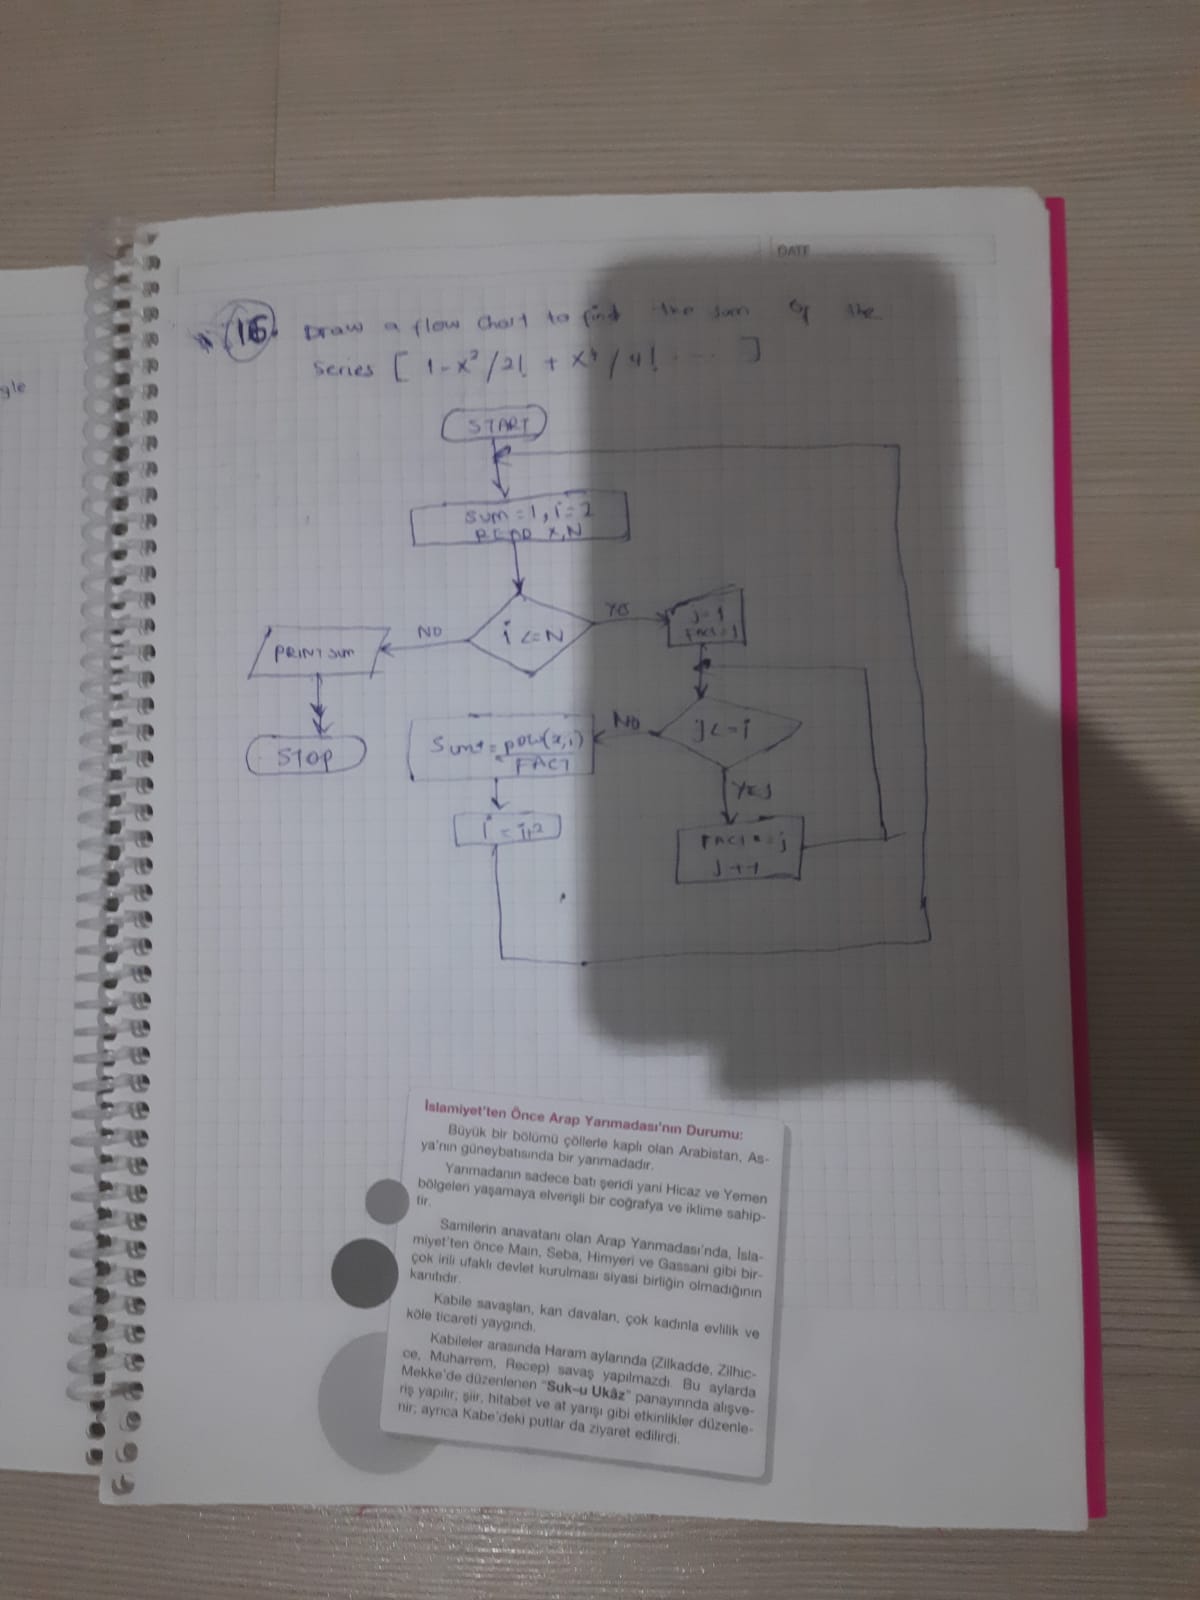 gle
DATE
16. Draw a flow chart to find the sum of the
series [ 1-x²/2! + x⁴/4! ..... ]
START
Sum=1, i=2
READ x,N
i <=N
NO
YES
PRINT sum
STOP
j=1
FACT=1
j<=i
NO
YES
Sum+=pow(x,i)
FACT
i = i+2
FACT*=j
j++
İslamiyet'ten Önce Arap Yarımadası'nın Durumu:
Büyük bir bölümü çöllerle kaplı olan Arabistan, As-
ya'nın güneybatısında bir yarımadadır.
Yarımadanın sadece batı şeridi yani Hicaz ve Yemen
bölgeleri yaşamaya elverişli bir coğrafya ve iklime sahip-
tir.
Samilerin anavatanı olan Arap Yarımadası'nda, İsla-
miyet'ten önce Main, Seba, Himyeri ve Gassani gibi bir-
çok irili ufaklı devlet kurulması siyasi birliğin olmadığının
kanıtıdır.
Kabile savaşları, kan davaları, çok kadınla evlilik ve
köle ticareti yaygındı.
Kabileler arasında Haram aylarında (Zilkadde, Zilhic-
ce, Muharrem, Recep) savaş yapılmazdı. Bu aylarda
Mekke'de düzenlenen "Suk-u Ukâz" panayırında alışve-
riş yapılır; şiir, hitabet ve at yarışı gibi etkinlikler düzenle-
nir; ayrıca Kabe'deki putlar da ziyaret edilirdi.